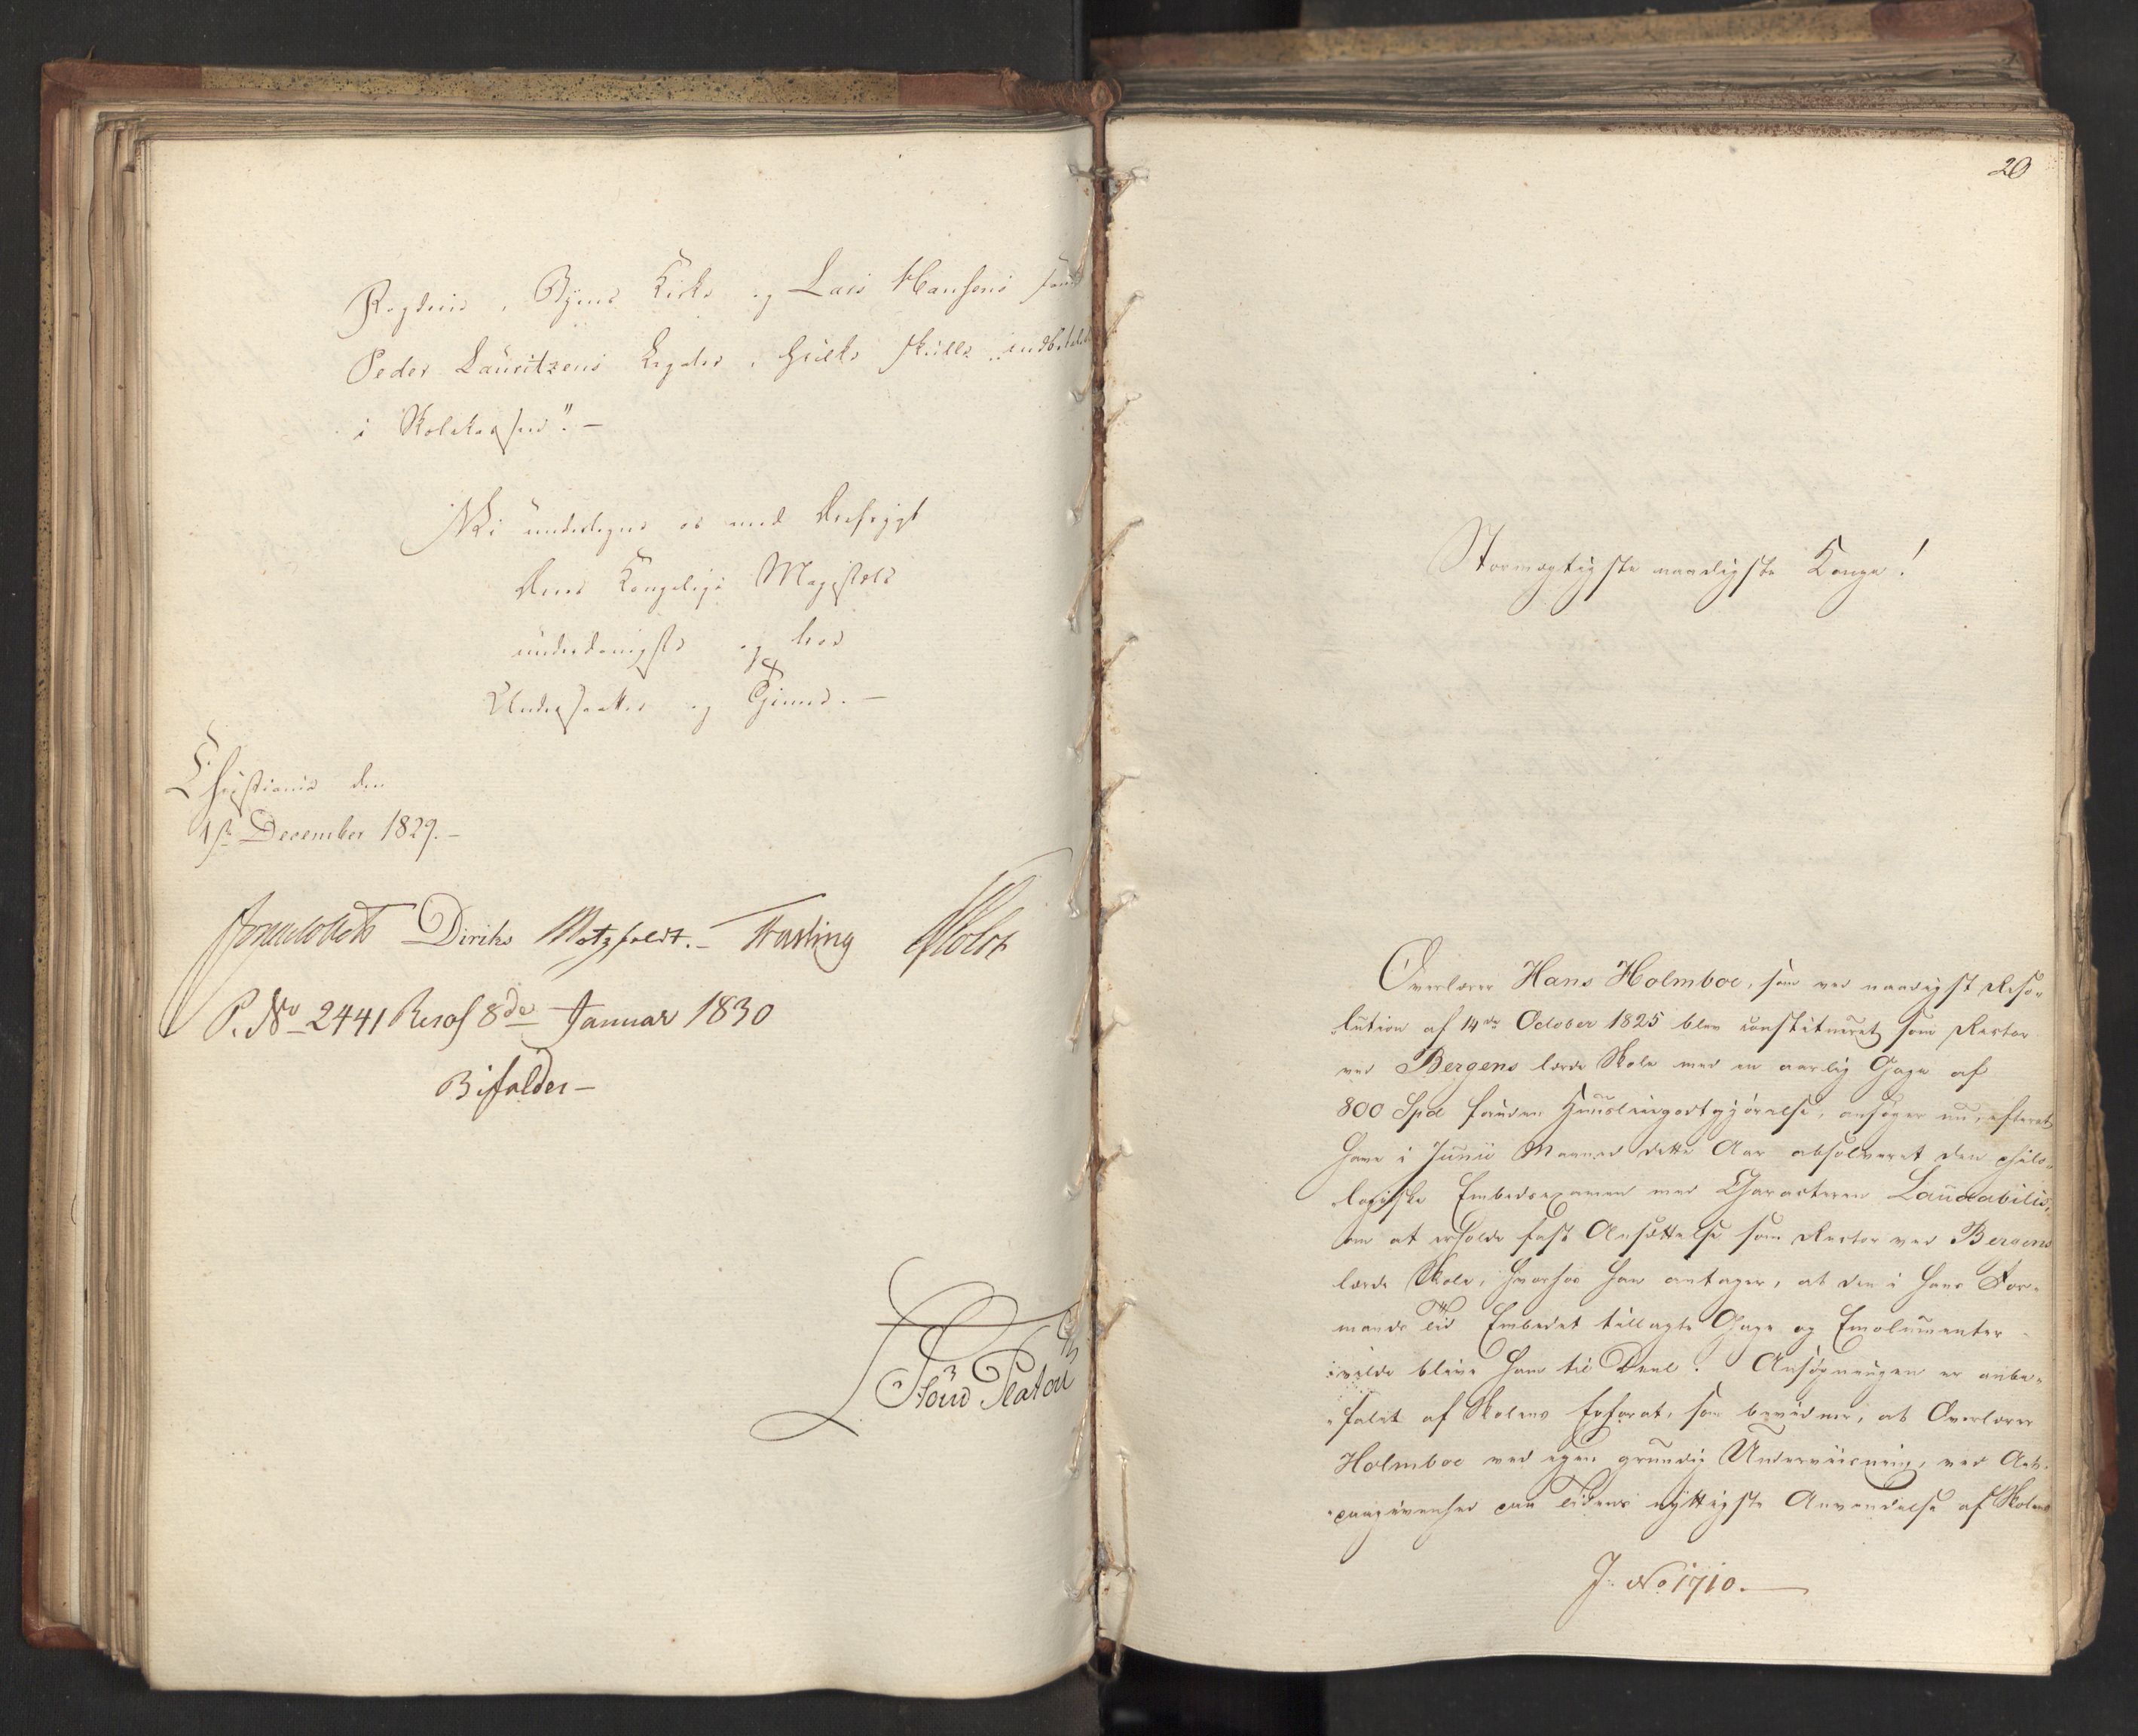 Byens Kirke og Lars Hansens samt
Peder Lauritzens Legater, hvilke skulle indbetales
i Skolekassen". —
Vi undertegne os med Ærefrygt
Deres Kongelige Majestæts
underdanigste og troe
Undersaatter og Tjenere. —
Christiania den
1ste December 1829. —
Diriks Motzfeldt. — Fasting Holst
P. No 2441 Resol 8de Januar 1830
Bifaldes —
Platou
20
Stormægtigste naadigste Konge!
Overlærer Hans Holmboe, som ved naadigst Reso-
lution af 14de October 1825 blev constitueret som Rector
ved Bergens lærde Skole med en aarlig Gage af
800 Spd foruden Huusleiegodtgjørelse, ansøger nu, efterat
have i Junii Maaned dette Aar absolveret den philo-
logiske Embedsexamen med Characteren Laudabilis,
om at erholde fast Ansættelse som Rector ved Bergens
lærde Skole, hvorhos han antager, at den i hans For-
mands Tid Embedet tillagte Gage og Emolumenter
vilde blive ham til Deel. Ansøgningen er anbe-
falet af Skolens Ephorat, som bevidner, at Overlærer
Holmboe ved egen grundig Underviisning, ved Aar-
paagivenhed paa Tidens nyttigste Anvendelse af Skolens
J. No 1710. —